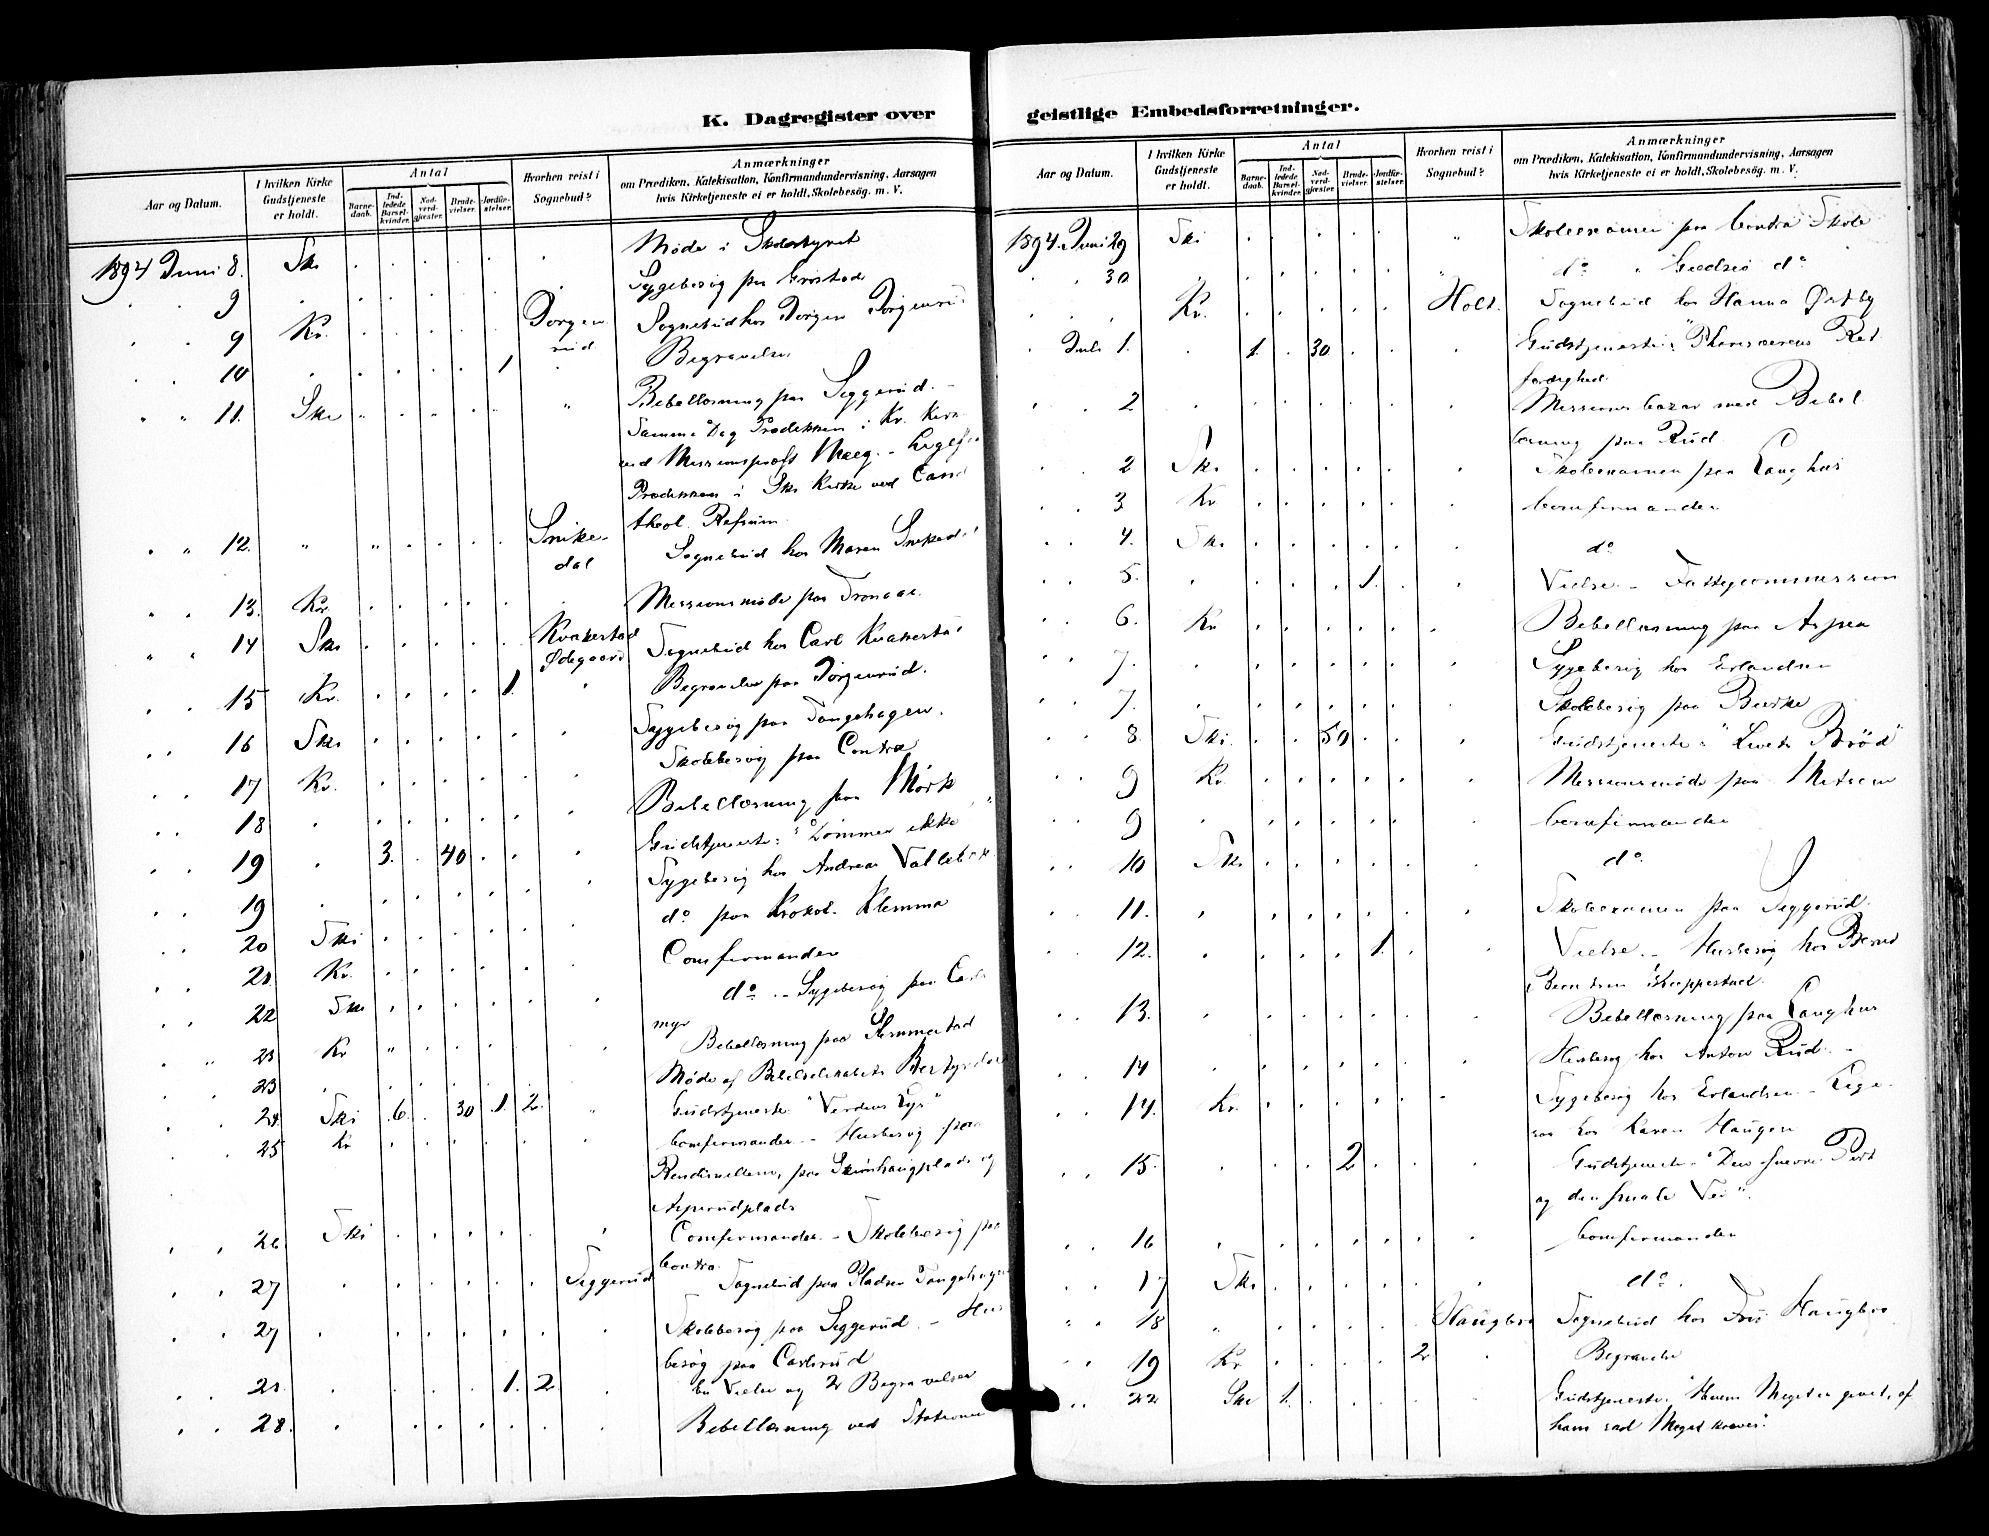 K. Dagregister over
Aar og Datum.
I hvilken Kirke Gudstjeneste er holdt.
Antal
Barnedaab.
Indledede Barselkvinder.
Nadverdgjæster.
Brudevielser.
Jordfæstelser.
Hvorhen reist i Sognebud?
Anmærkninger
om Prædiken, Katekisation, Konfirmandundervisning, Aarsagen
hvis Kirketjeneste ei er holdt, Skolebesøg. m. V.
1894 Juni 8. Ski Møde i Skolestyret
9 Sygebesøg paa
9 Kr. Jørgenrud Sognebud hos Jørgen Jørgenrud
10 1 Begravelse
11. Ski Bibellæsning paa Siggerud. –
Samme Dag Prædiken i Kr. Kirke
ved
Prædiken i Ski Kirke ved Cand
theol. Refsum.
12. Snikedal Sognebud hos Maren
13. Kr. Missionsmøde paa
14 Ski Kvakestad Ødegaard Sognebud hos Carl Kvakestad
15 Kr. 1. Begravelse paa Jørgenrud.
16 Ski Sygebesøg paa Tangehagen.
Skolebesøg paa Contra
17 Kr.
18 Bibellæsning paa Mørk
19 3. 40 Gudstjeneste: "Dømmer ikke"
19 Sygebesøg hos Andreas
20 Ski do paa Klemma
21. Kr. Confirmander
22 Ski do – Sygebesøg paa
myr
23 Kr Bibellæsning paa
23 Møde af Bibelselskabets Bestyrelse
24. Ski 6. 30 1. 2. Gudstjeneste "Verdens Lys"
25 Kr Comfirmander – Husbesøg paa
paa og
26 Ski Comfirmander – Skolebesøg paa
Contra.
27 Siggerud Sognebud paa Pladsen Tangehagen
27 Skolebesøg paa Siggerud – Hus
besøg paa Carlsrud
28. 1. 2. En Vielse og 2 Begravelser
28. Bibellæsning ved Stationen
geistlige Embedsforretninger.
Aar og Datum.
I hvilken Kirke Gudstjeneste er holdt.
Antal
Barnedaab.
Indledede Barselkvinder.
Nadverdgjæster.
Brudevielser.
Jordfæstelser.
Hvorhen reist i Sognebud?
Anmærkninger
om Prædiken, Katekisation, Konfirmandundervisning, Aarsagen
hvis Kirketjeneste ei er holdt, Skolebesøg. m. V.
1894 Juni 29 Ski Skoleexamen paa Contra Skole
30 do " do
Kr. Holt. Sognebud hos Hanna Østby
Juli 1. 1. 30 Gudstjeneste: "Pharisæernes Ret
færdighed.
2 Missionsbazar med Bibel
læsning paa Rud.
2 Ski Skoleexamen paa Langhus
3 Kr Comfirmander
4. Ski do
5. 1. Vielse – Fattigcommission
6. Kr Bibellæsning paa
7. Sygebesøg hos Erlandsen
7. Skolebesøg paa
8. Ski. 50 Gudstjeneste: "Livets Brød"
9 Kr. Missionsmøde paa
9 Comfirmander
10 Ski do.
11. Skoleexamen paa Siggerud.
12. 1. Vielse. – Husbesøg hos
Kappestad.
13. Bibellæsning paa Langhus
14 Husbesøg hos Anton Rud. –
14. Kr. Sygebesøg hos Erlandsen – Lige
saa hos Karen Haugen
15. 2 Gudstjeneste – "Den snevre Port
og den smale Vei".
16 Comfirmander
17 Ski do.
18 Haugbro Sognebud hos Haugbro
19 Kr 2 Begravelse
22 Ski 1. Gudstjeneste. "Hvem Meget er givet, af
ham skal Meget kræves".